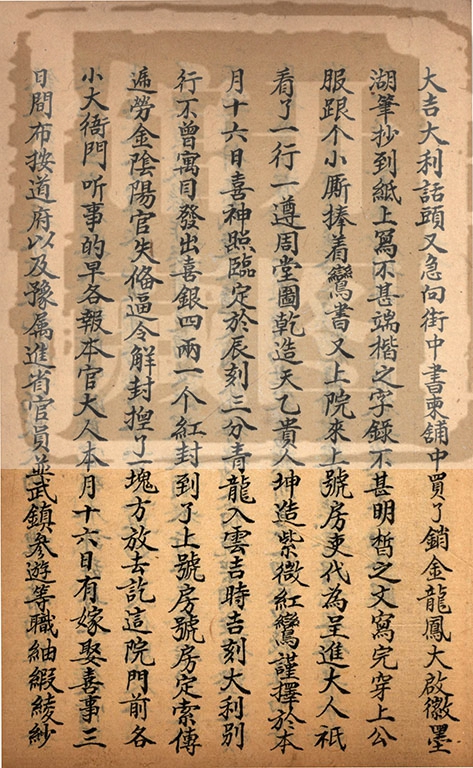 大吉大利話頭又急向街中書柬舖中買了銷金龍鳳大啟徽墨
湖筆抄到紙上寫不甚端楷之字錄不甚明皙之文寫完穿上公
服跟个小厮捧着鸞書又上院來上號房吏代為呈進大人祇
看了一行一遵周堂圖乾造天乙貴人坤造紫微紅鸞謹擇於本
月十六日喜神照臨定於辰刻三分青龍入雲吉時吉刻大利別
行不曾寓目發出喜銀四兩一个紅封到了上號房號房定索傳
遞勞金陰陽官失偹逼令解封揑了一塊方放去訖這院門前各
小大衙門听事的早各報本官大人本月十六日有嫁娶喜事三
日間布按道府以及豫属進省官員並武鎮參遊等職紬緞綾紗